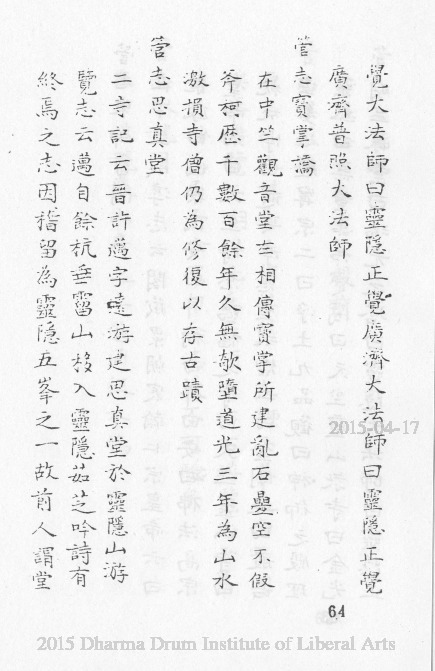 覺大法師曰靈隱正覺廣濟大法師曰靈隱正覺
廣濟普照大法師
嘗志寶掌橋
在中竺觀音堂左相傳寶掌所建亂石疊空不假
斧柯歷千數百餘年久無欹墮道光三年為山水
激損寺僧仍為修復以存古蹟
嘗志思真堂
二寺記云晉許邁字遠游建思真堂於靈隱山游
覽志云邁自餘杭垂霤山移入靈隱茹芝吟詩有
終焉之志因稽留為靈隱五峯之一故前人謂堂
64
2015-04-17
2015 Dharma Drum Institute of Liberal Arts